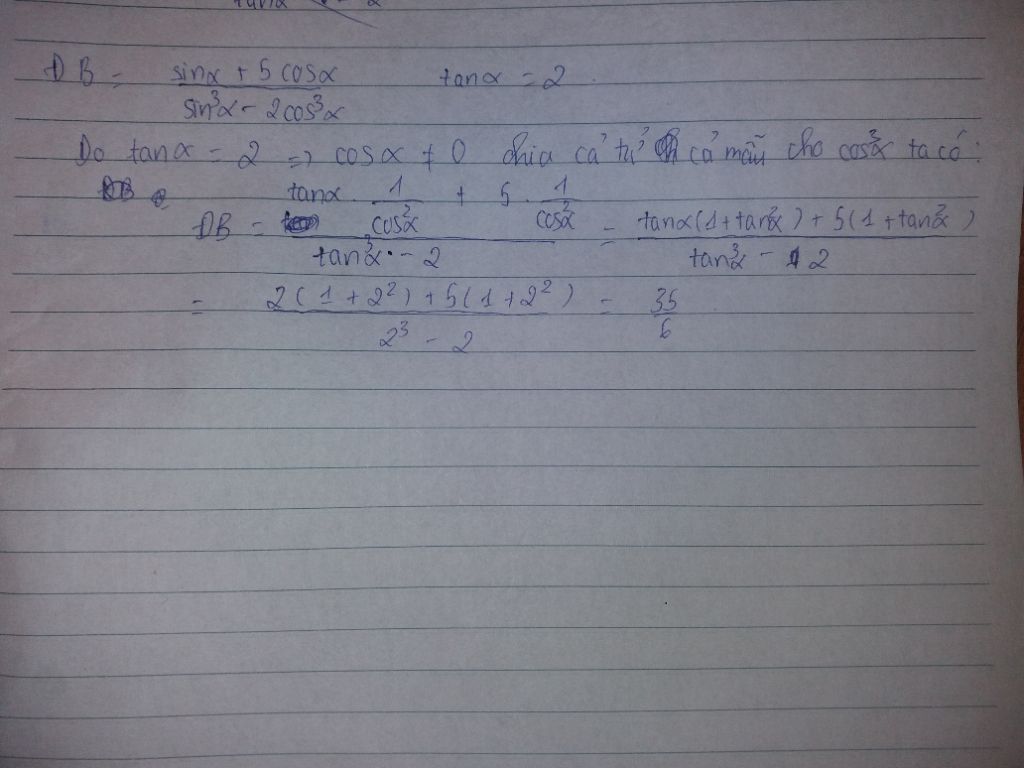 tanα 2
Đ B = (sinα + 5 cosα)/(sin³α - 2cos³α) tanα = 2.
Do tanα = 2 => cosα ≠ 0 chia cả tử cả mẫu cho cos³α ta có:
ĐB = (tanα . 1/cos²α + 5 . 1/cos²α)/(tan³α - 2) = (tanα(1 + tan²α) + 5(1 + tan²α))/(tan³α - 2)
= (2(1 + 2²) + 5(1 + 2²))/(2³ - 2) = 35/6